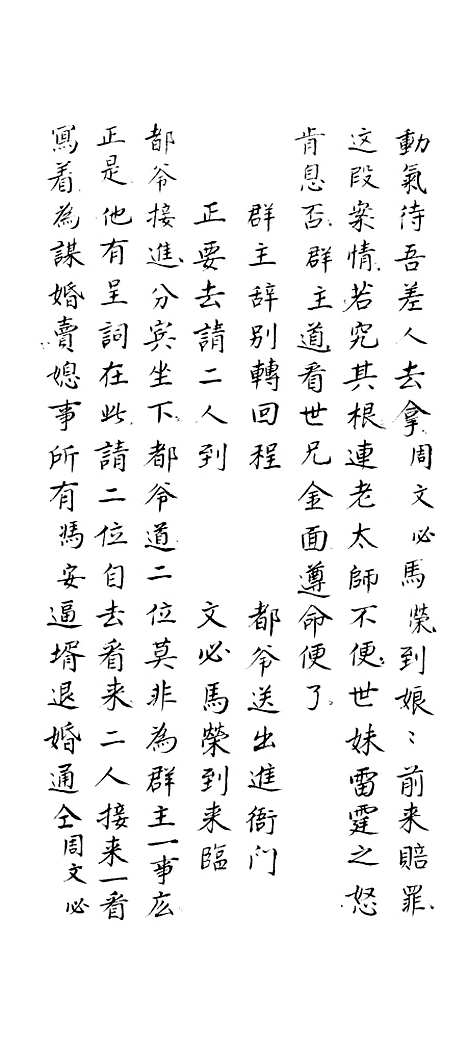 動氣待吾差人去拿周文必馬榮到娘〻前来賠罪.
这段案情.若究其根連老太師不便.世妹雷霆之怒.
肯息否.群主道看世兄金面遵命便了.
群主辞别轉回程　都爷送出進衙门
正要去請二人到　文必馬榮到来臨
都爷接進.分宾坐下.都爷道二位莫非為群主一事広.
正是.他有呈詞在此.請二位自去看来.二人接来一看
寫着.為謀婚賣媳事所有馮安逼壻退婚通仝周文必